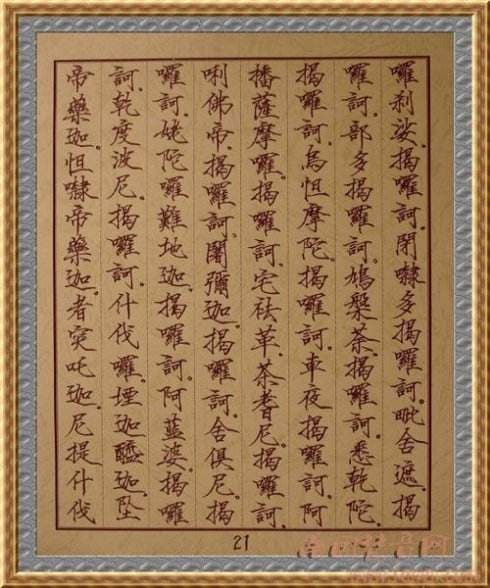 囉刹娑。揭囉訶。閉㘑多揭囉訶。毗舍遮。揭
囉訶。部多揭囉訶。鳩槃荼揭囉訶。悉乾陀。
揭囉訶。烏怛摩陀。揭囉訶。車夜揭囉訶。阿
播薩摩囉。揭囉訶。宅袪革。荼耆尼。揭囉訶。
唎佛帝。揭囉訶。闍彌迦。揭囉訶。舍俱尼。揭
囉訶。姥陀囉難地迦。揭囉訶。阿藍婆。揭囉
訶。乾度波尼。揭囉訶。什伐囉。堙迦醯迦。墜
帝藥迦。怛㘑帝藥迦。者突吒迦。尼提什伐
21